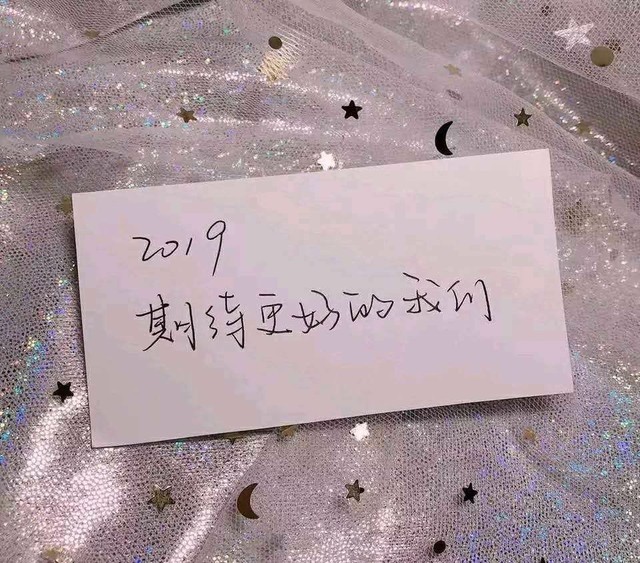 2019
期待更好的我们